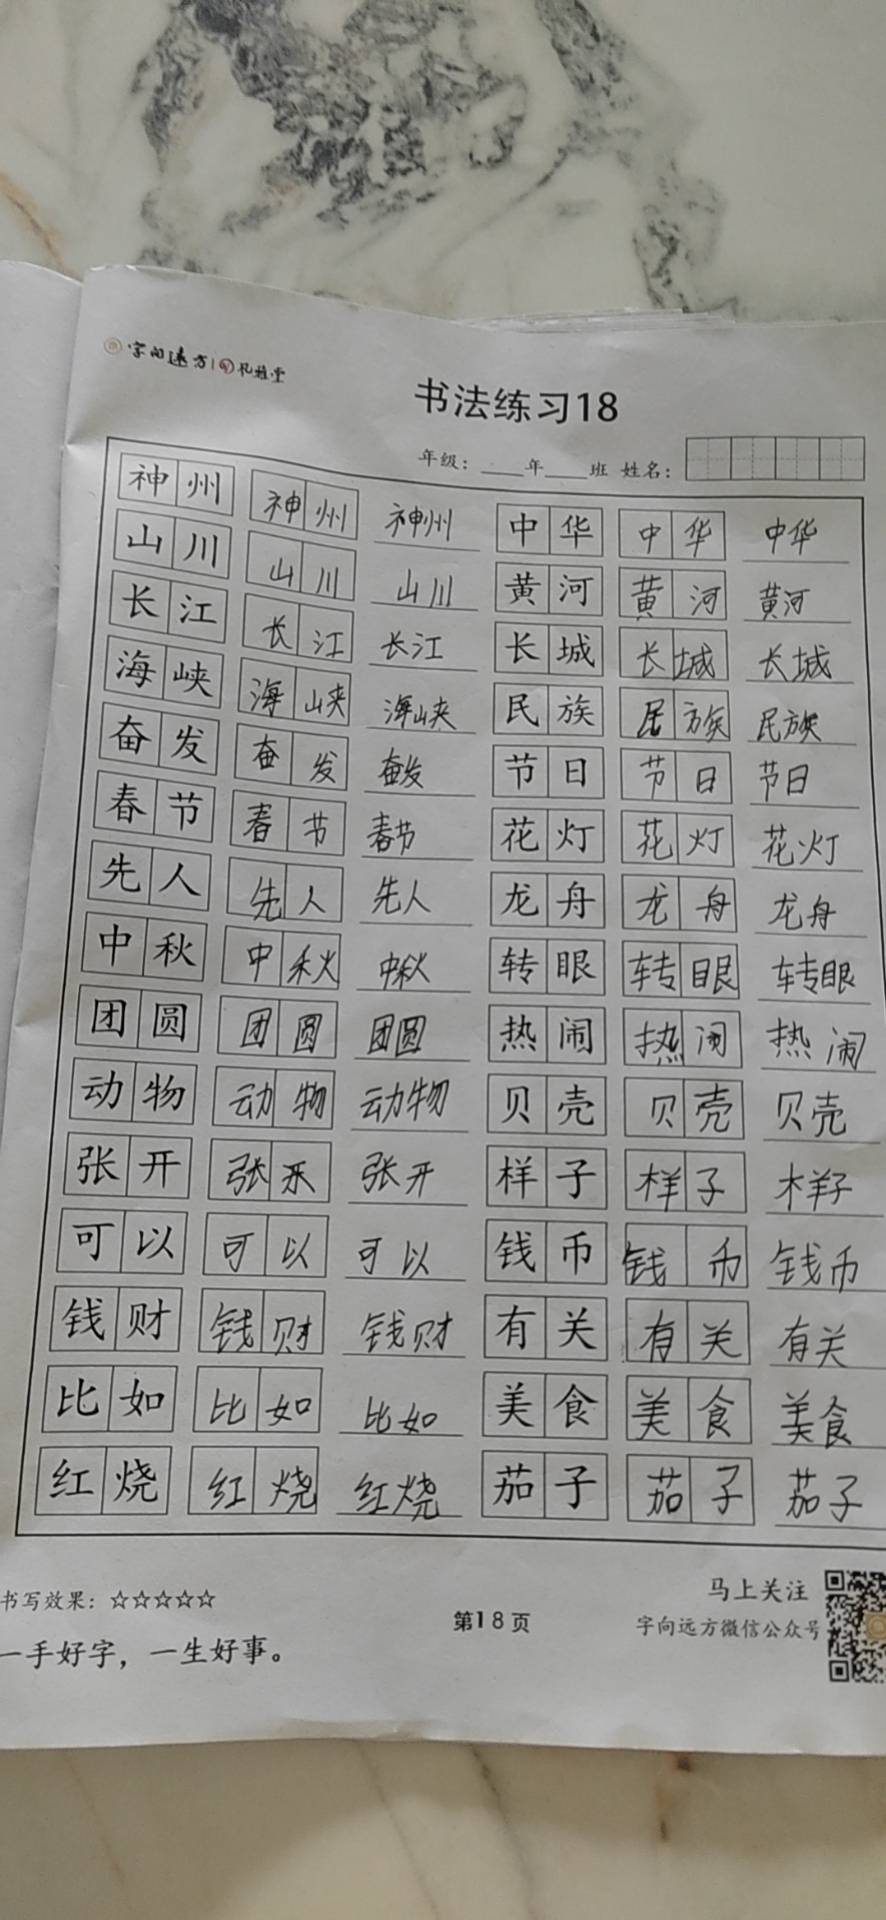 字向远方 孔雅堂
书法练习18
年级：____年____班 姓名：
神州 神州 神州 中华 中华 中华
山川 山川 山川 黄河 黄河 黄河
长江 长江 长江 长城 长城 长城
海峡 海峡 海峡 民族 民族 民族
奋发 奋发 奋发 节日 节日 节日
春节 春节 春节 花灯 花灯 花灯
先人 先人 先人 龙舟 龙舟 龙舟
中秋 中秋 中秋 转眼 转眼 转眼
团圆 团圆 团圆 热闹 热闹 热闹
动物 动物 动物 贝壳 贝壳 贝壳
张开 张开 张开 样子 样子 样子
可以 可以 可以 钱币 钱币 钱币
钱财 钱财 钱财 有关 有关 有关
比如 比如 比如 美食 美食 美食
红烧 红烧 红烧 茄子 茄子 茄子
书写效果：☆☆☆☆☆
一手好字，一生好事。
第18页
马上关注
字向远方微信公众号